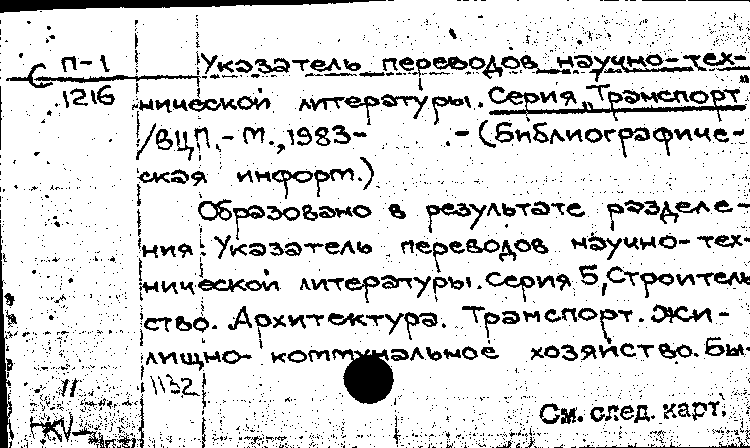 С П-1 Указатель переводов научно-тех-
1216 нической литературы. Серия „Транспорт"
/ВЦП.- М., 1983-          .- (Библиографиче-
ская информ.)
Образовано в результате разделе-
ния: Указатель переводов научно-тех-
нической литературы. Серия 5, Строитель-
ство. Архитектура. Транспорт. Жи-
лищно-коммунальное хозяйство. Бы-
11 1132
См. след. карт.